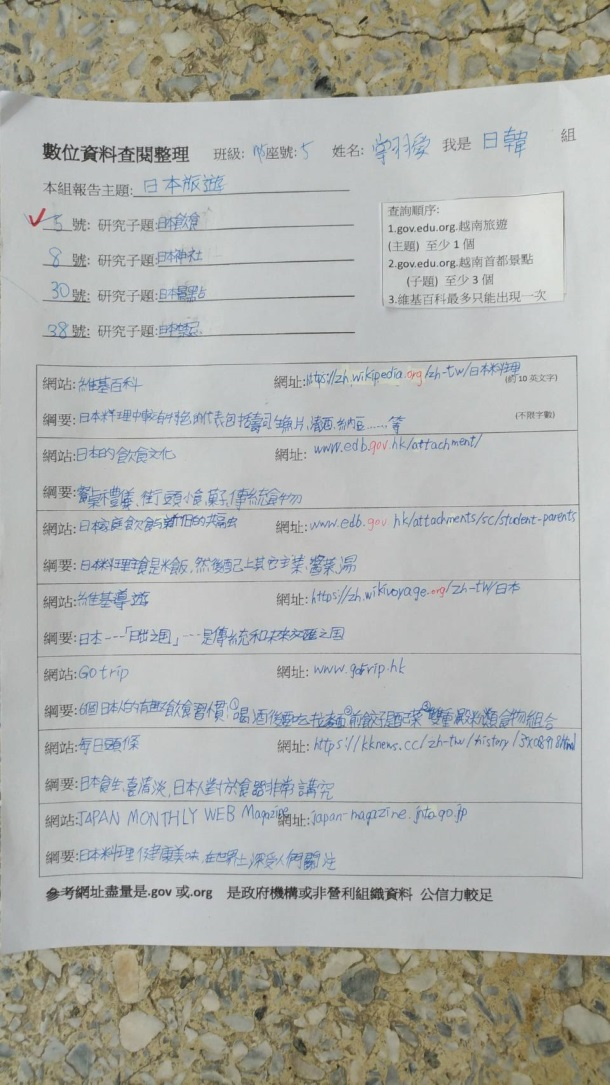 數位資料查閱整理 班級: 座號: 5 姓名: 我是 日韓 組
本組報告主題: 日本旅遊
5 號: 研究子題:日本飲食
8 號: 研究子題:日本神社
30 號: 研究子題:日本景點
38 號: 研究子題:日本
查詢順序:
1.gov.edu.org.越南旅遊
(主題) 至少 1 個
2.gov.edu.org.越南首都景點
(子題) 至少 3 個
3.維基百科最多只能出現一次
網站:維基百科 網址:https://zh.wikipedia.org/zh-tw/日本料理 (約 10 英文字)
綱要:日本料理中較有特色的代表包括壽司生魚片,清酒,納豆......等 (不限字數)
網站:日本的飲食文化 網址: www.edb.gov.hk/attachment/
綱要:餐桌禮儀、街頭小食,菓子,傳統食物
網站:日本家庭飲食 網址:www.edb.gov hk/attachments/sc/student-parents
綱要:日本料理主食是米飯,然後配上其它主菜,醬菜,湯
網站:維基導遊 網址:https://zh.wikivoyage.org/zh-tw/日本
綱要:日本---「日出之国」---是傳統和未來交匯之国
網站:Gotrip 網址: www.gotrip.hk
綱要:6個日本人的有趣飲食習慣:①喝酒後要吃拉麵②煎餃子配菜③雙重澱粉類食物組合
網站:每日頭條 網址: https://kknews.cc/zh-tw/history/
綱要:日本食生,喜清淡,日本人對於食器非常講究
網站:JAPAN MONTHLY WEB Magazine 網址:japan-magazine.jnto.go.jp
綱要:日本料理健康美味,在世界上深受人們關注
參考網址盡量是.gov 或.org 是政府機構或非營利組織資料 公信力較足